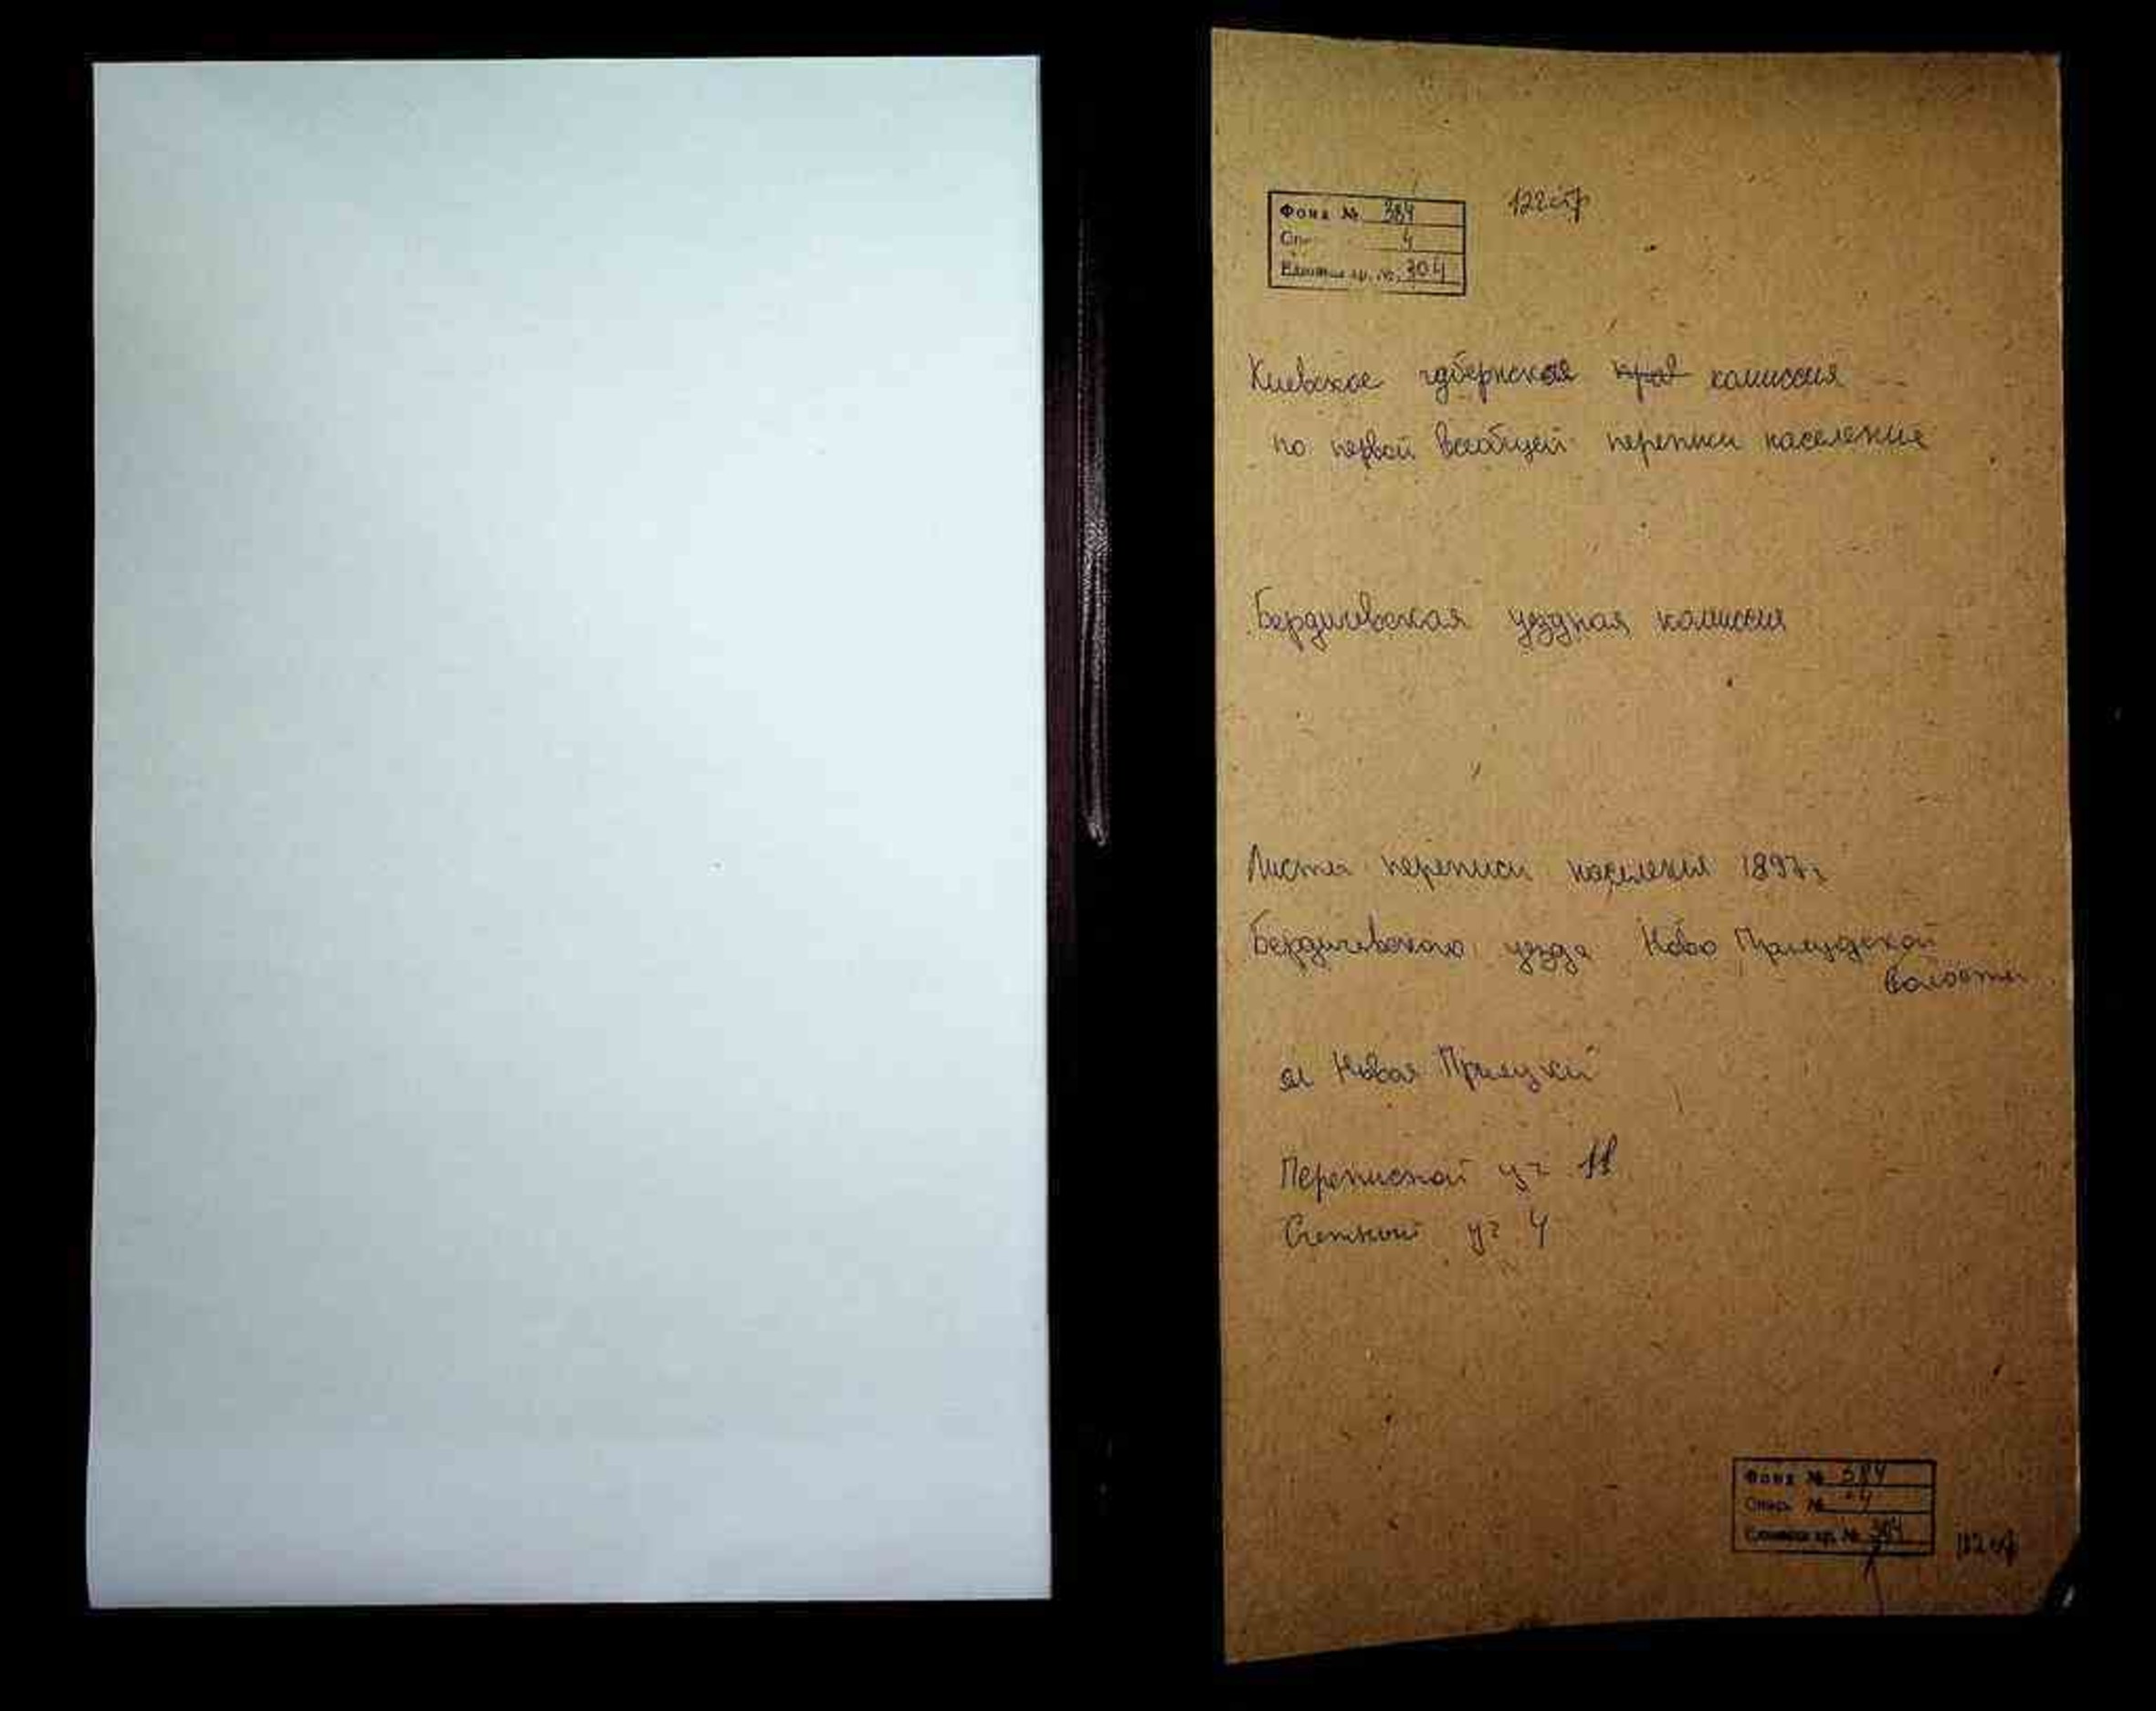 Фонд № 384
122 стр
Оп. 4
Единица хр. № 304
Киевское губернская прав комиссия
по первой всеобщей переписи население
Бердичевская уездная комиссия
Листы переписи населения 1897 г
Бердичевского уезда Ново Прилуцкой
волости
м Новая Прилуки
Переписной уч 11
Счетной уч 4
Фонд № 384
Опись № 4
Единица хр. № 304